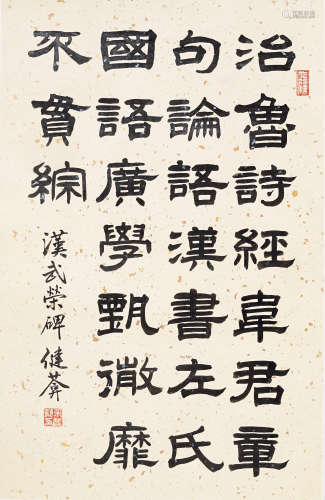 治魯詩經韋君章
句論語漢書左氏
國語廣學甄微靡
不貫綜
漢武榮碑 健葊